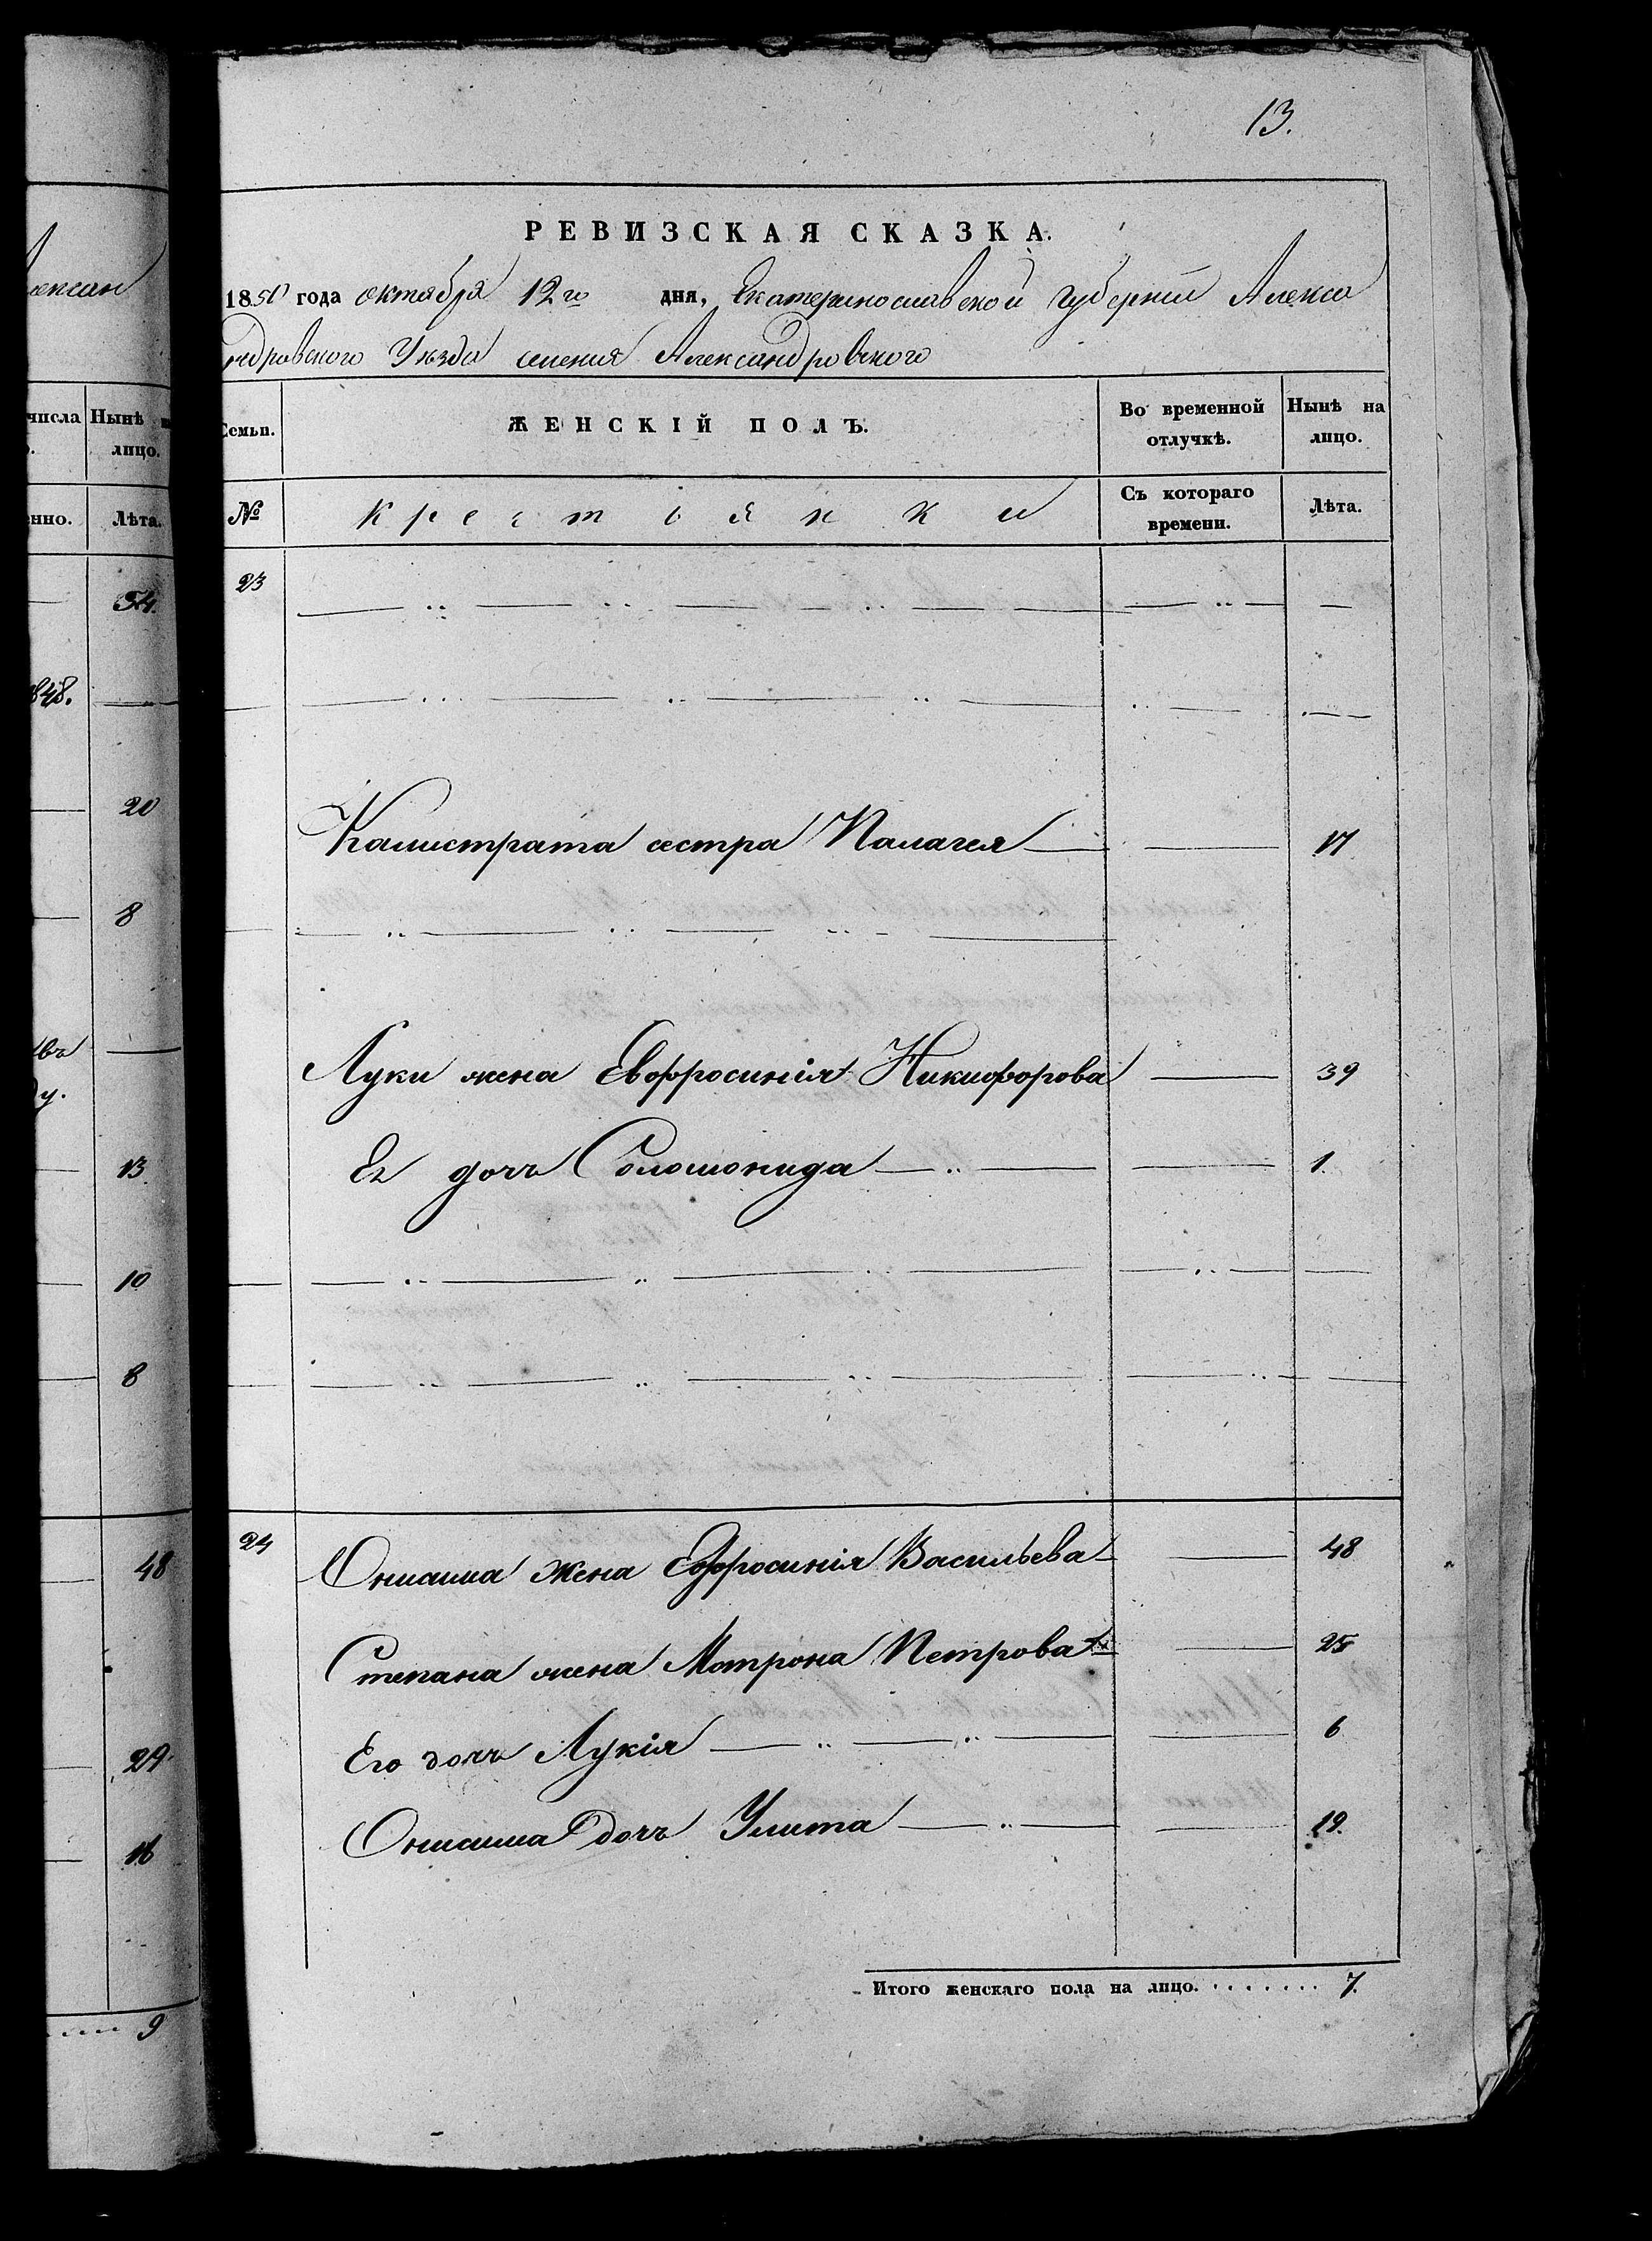 13.
лексан
РЕВИЗСКАЯ СКАЗКА.
1850 года октября 12го дня, Екатеринославской губернии Алекса
ндровского Уезда селения Александровского
числа Нынѣ
лицо.
Семьи. ЖЕНСКІЙ ПОЛЪ. Во временной отлучкѣ. Нынѣ на лицо.
енно. Лѣта.
№ крестьянки Съ котораго времени. Лѣта.
23
54.
1848.
20
Калистрата сестра Палагея 17
8
Луки жена Евфросинія Никифорова 39
13
Ея дочь Соломонида 1.
10
8
24 Онисима жена Ефросинія Васильева 48
48
Степана жена Мотрона Петрова 25
29
Его дочь Лукія 6
16
Онисима дочь Улита 19.
Итого женскаго пола на лицо. 7.
9